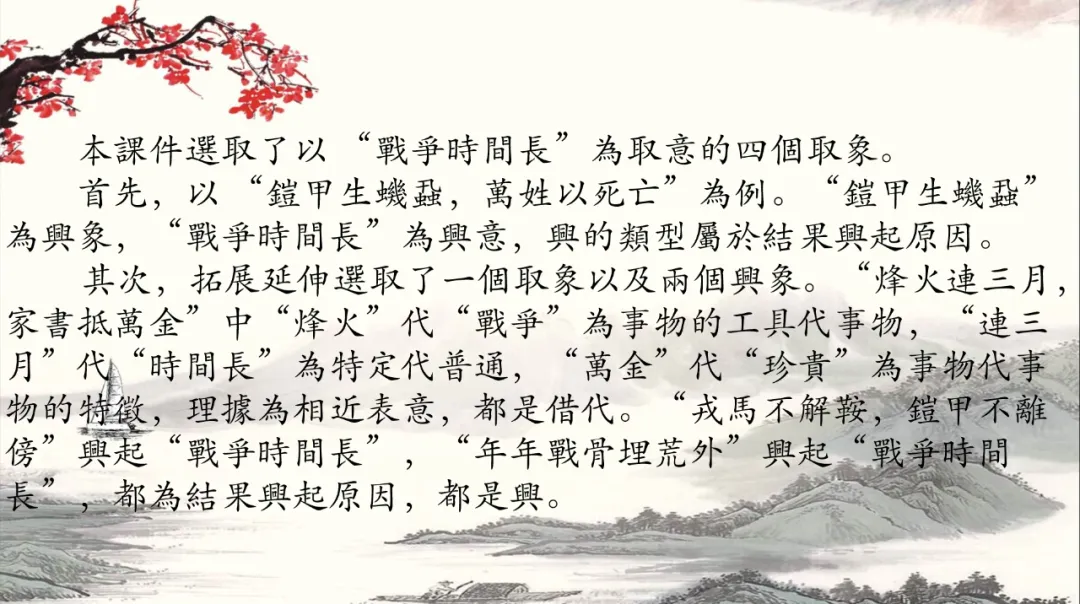 本課件選取了以“戰爭時間長”為取意的四個取象。
首先，以“鎧甲生蟣蝨，萬姓以死亡”為例。“鎧甲生蟣蝨”
為興象，“戰爭時間長”為興意，興的類型屬於結果興起原因。
其次，拓展延伸選取了一個取象以及兩個興象。“烽火連三月，
家書抵萬金”中“烽火”代“戰爭”為事物的工具代事物，“連三
月”代“時間長”為特定代普通，“萬金”代“珍貴”為事物代事
物的特徵，理據為相近表意，都是借代。“戎馬不解鞍，鎧甲不離
傍”興起“戰爭時間長”，“年年戰骨埋荒外”興起“戰爭時間
長”，都為結果興起原因，都是興。